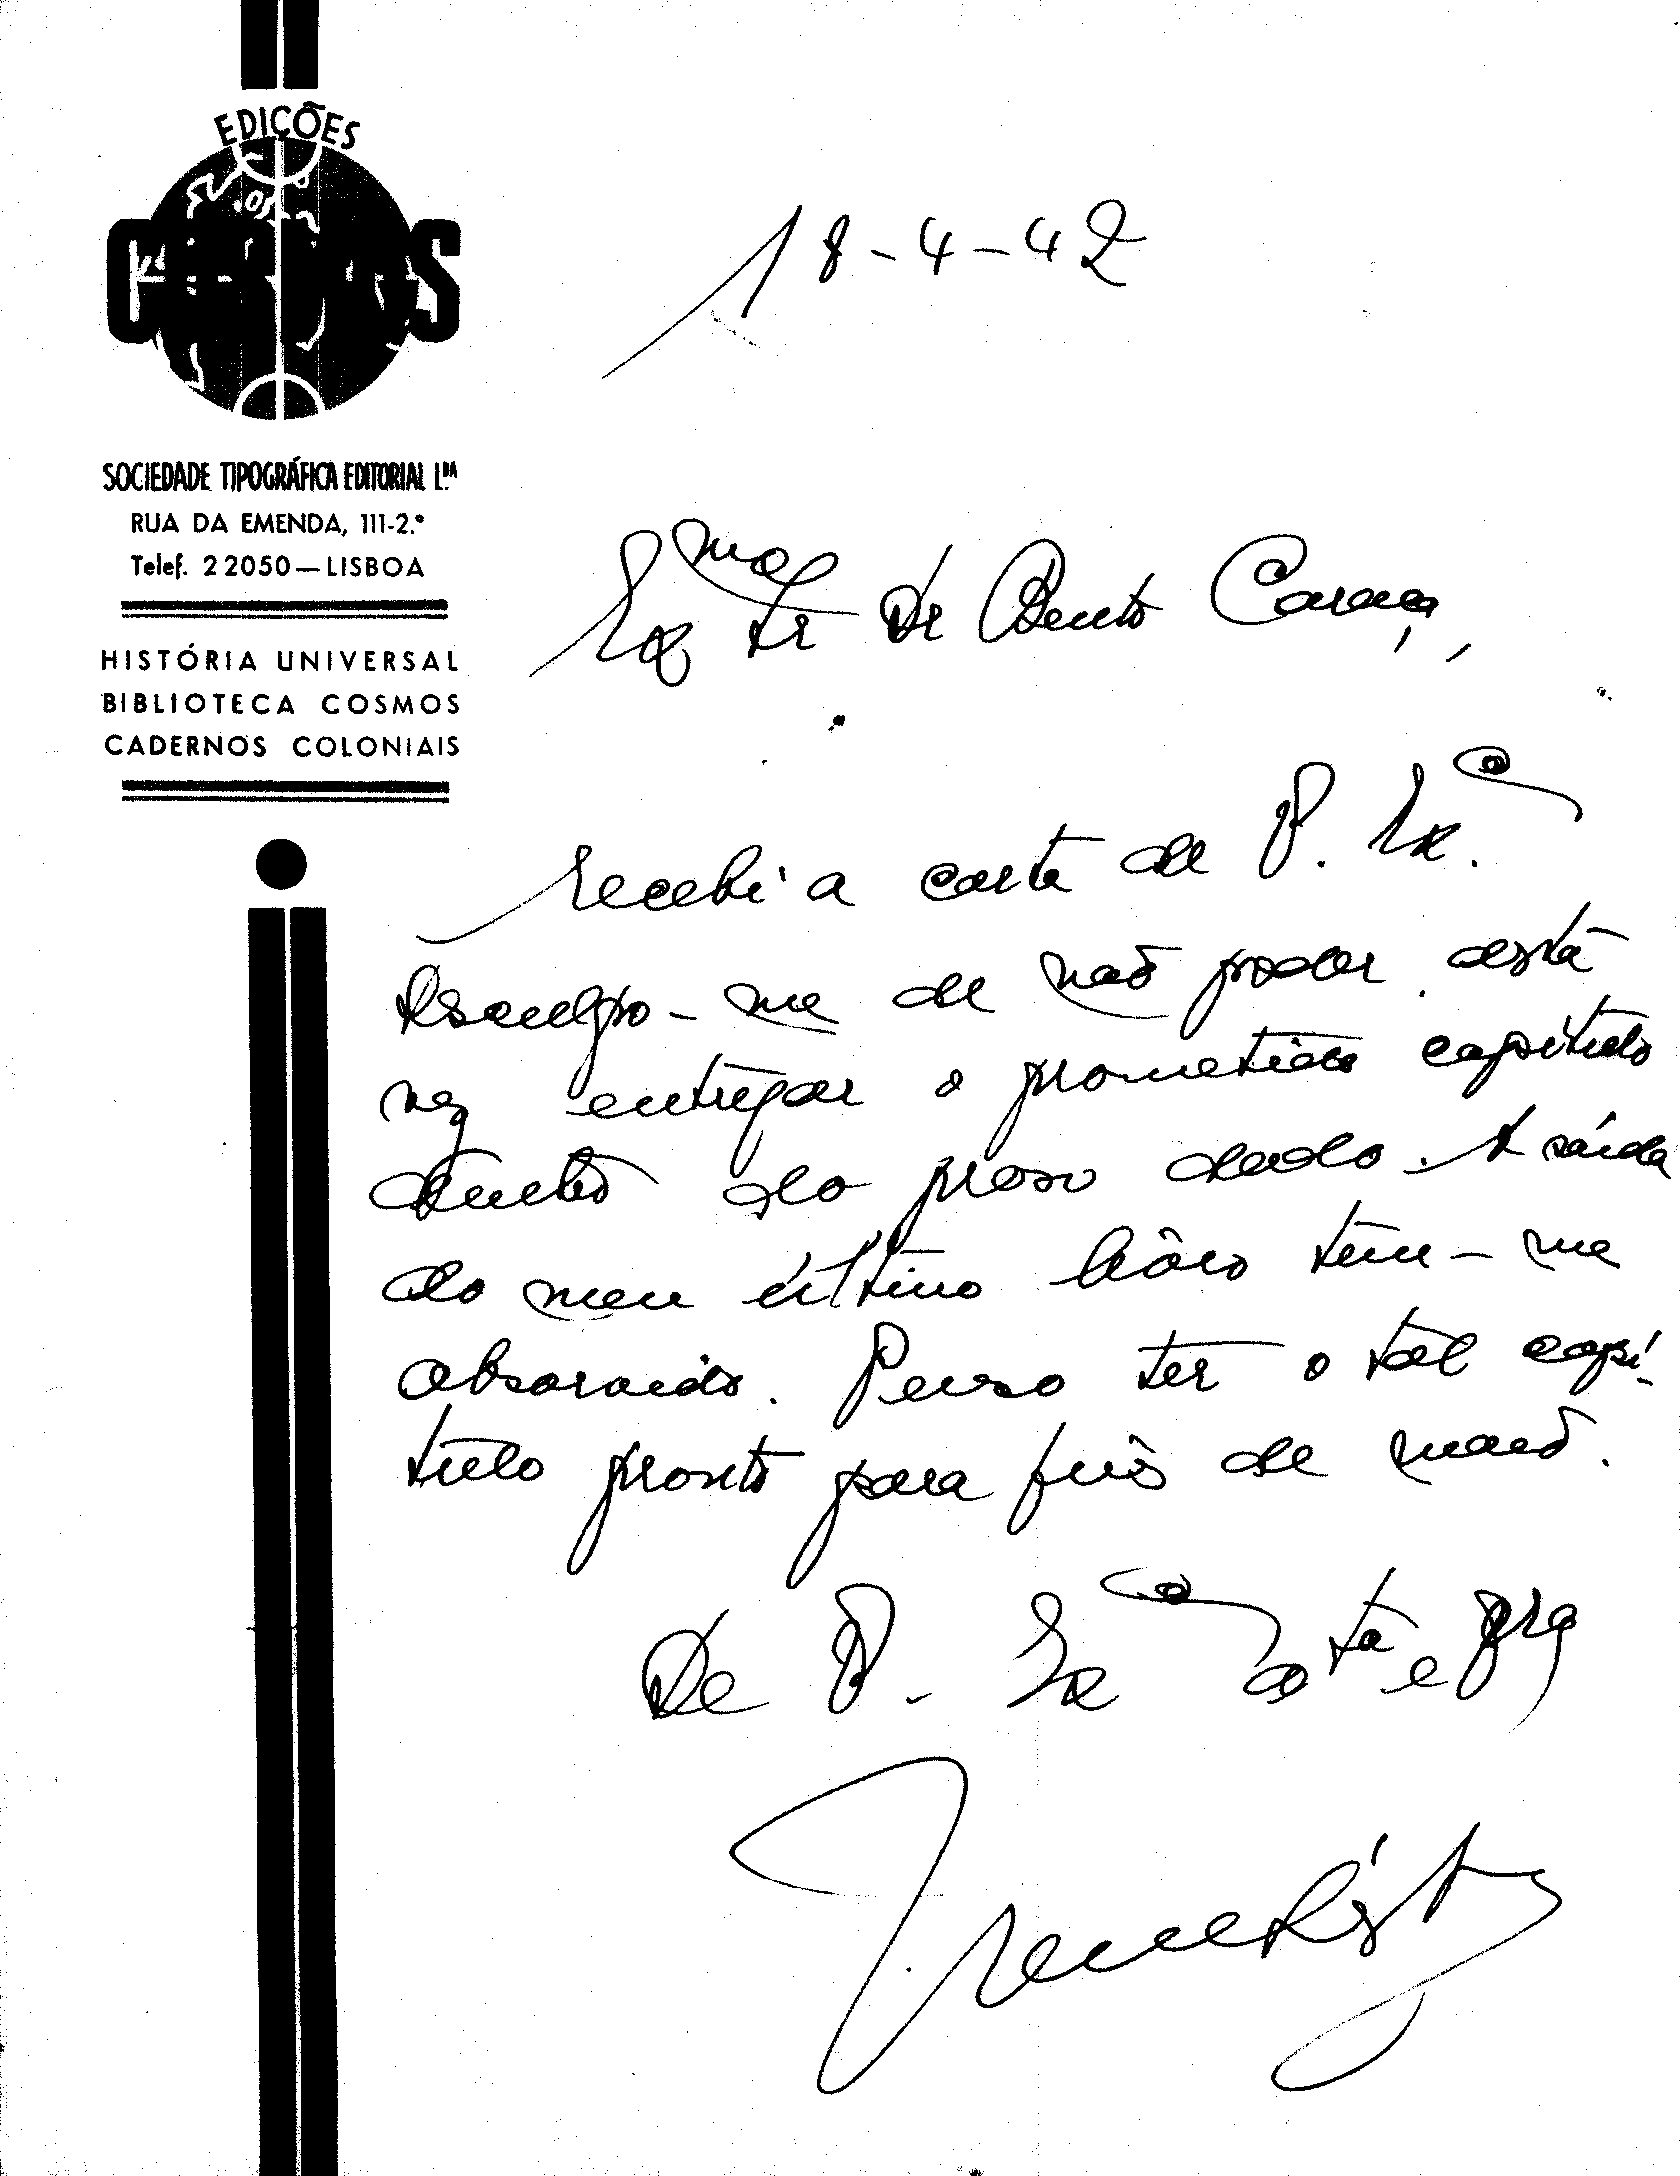 EDIÇÕES
COSMOS
SOCIEDADE TIPOGRÁFICA EDITORIAL L.DA
RUA DA EMENDA, 111-2.º
Telef. 22050—LISBOA
HISTÓRIA UNIVERSAL
BIBLIOTECA COSMOS
CADERNOS COLONIAIS
18-4-42
Exmo Sr Dr Bento Caraça,
Recebi a carta de V. Ex.a
Desculpo-me de não poder esta
vez entregar o prometido capítulo
dentro do prazo dado. A saída
do meu último livro tem-me
absorvido. Penso ter o tal capí-
tulo pronto para fins de maio.
De V. Exa ato e obrg